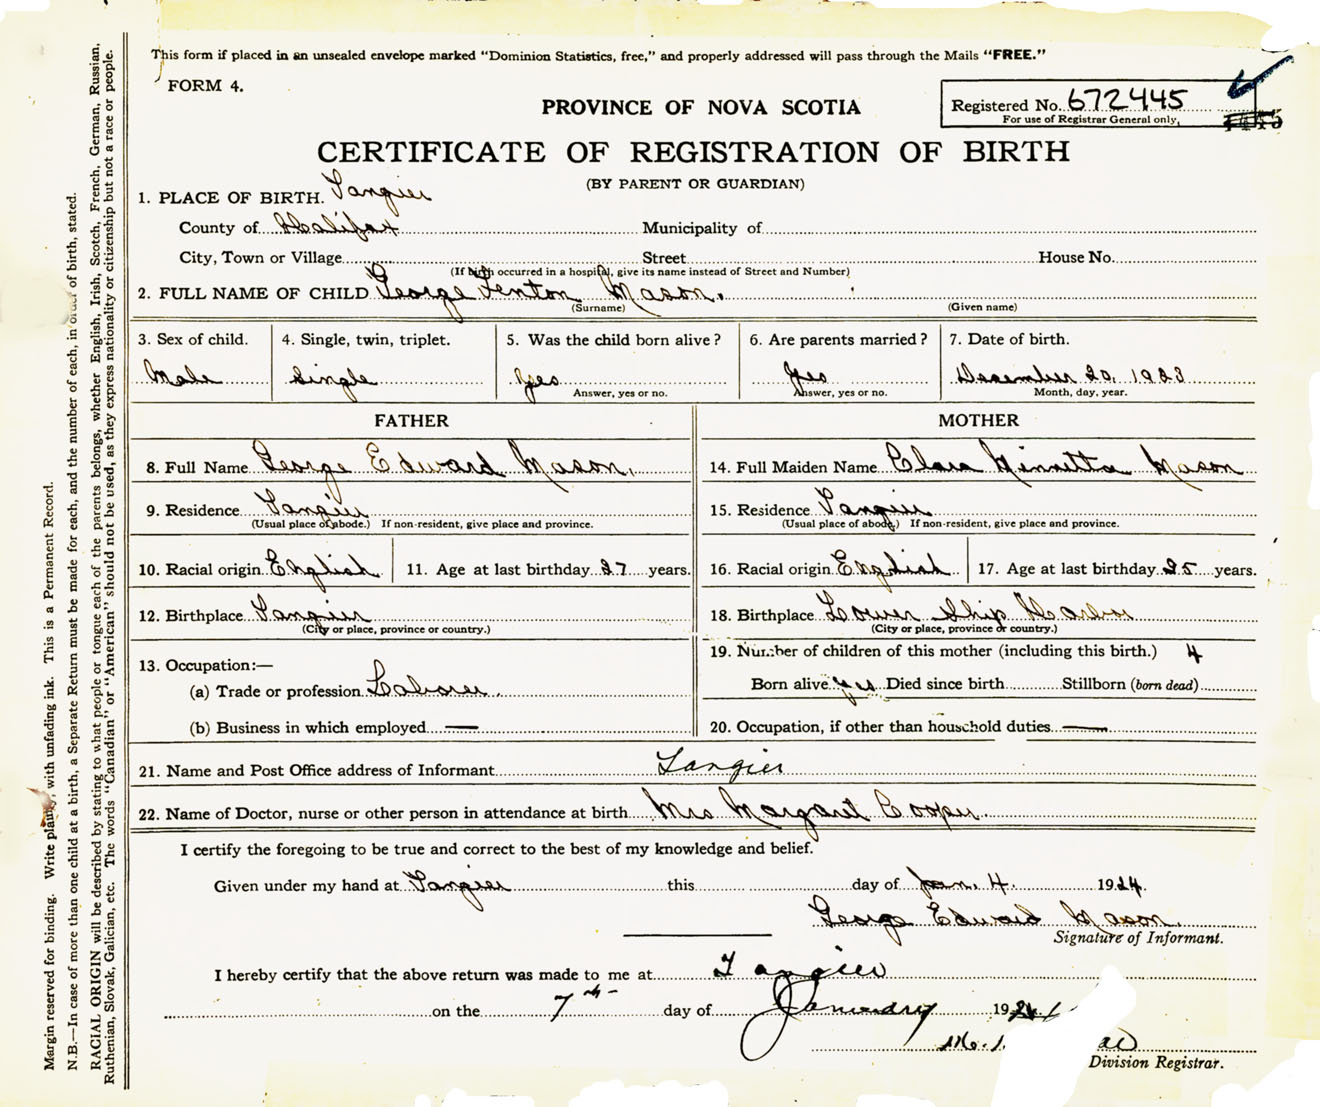 This form if placed in an unsealed envelope marked "Dominion Statistics, free," and properly addressed will pass through the Mails "FREE."
FORM 4.
PROVINCE OF NOVA SCOTIA
Registered No. 672445
For use of Registrar General only.
CERTIFICATE OF REGISTRATION OF BIRTH
(BY PARENT OR GUARDIAN)
1. PLACE OF BIRTH. Tangier
County of Halifax Municipality of
City, Town or Village Street House No.
(If birth occurred in a hospital, give its name instead of Street and Number)
2. FULL NAME OF CHILD George Fenton Mason.
(Surname) (Given name)
3. Sex of child. 4. Single, twin, triplet. 5. Was the child born alive? 6. Are parents married? 7. Date of birth.
Male Single Yes Yes December 20, 1923
Answer, yes or no. Answer, yes or no. Month, day, year.
FATHER MOTHER
8. Full Name George Edward Mason. 14. Full Maiden Name Clara Mason
9. Residence Tangier 15. Residence Tangier
(Usual place of abode.) If non-resident, give place and province. (Usual place of abode.) If non-resident, give place and province.
10. Racial origin English 11. Age at last birthday 27 years. 16. Racial origin English 17. Age at last birthday 25 years.
12. Birthplace Tangier 18. Birthplace Lower Ship Harbor
(City or place, province or country.) (City or place, province or country.)
13. Occupation:— 19. Number of children of this mother (including this birth.) 4
(a) Trade or profession Laborer Born alive yes Died since birth Stillborn (born dead)
(b) Business in which employed — 20. Occupation, if other than household duties —
21. Name and Post Office address of Informant Tangier
22. Name of Doctor, nurse or other person in attendance at birth Mrs Margaret Cooper.
I certify the foregoing to be true and correct to the best of my knowledge and belief.
Given under my hand at Tangier this day of Jan. 4. 1924.
George Edward Mason.
Signature of Informant.
I hereby certify that the above return was made to me at Tangier
on the 7th day of January 1924
Division Registrar.
Margin reserved for binding. Write plainly, with unfading ink. This is a Permanent Record.
N.B.—In case of more than one child at a birth, a Separate Return must be made for each, and the number of each, in order of birth, stated.
RACIAL ORIGIN will be described by stating to what people or tongue each of the parents belongs, whether English, Irish, Scotch, French, German, Russian,
Ruthenian, Slovak, Galician, etc. The words "Canadian" or "American" should not be used, as they express nationality or citizenship but not a race or people.